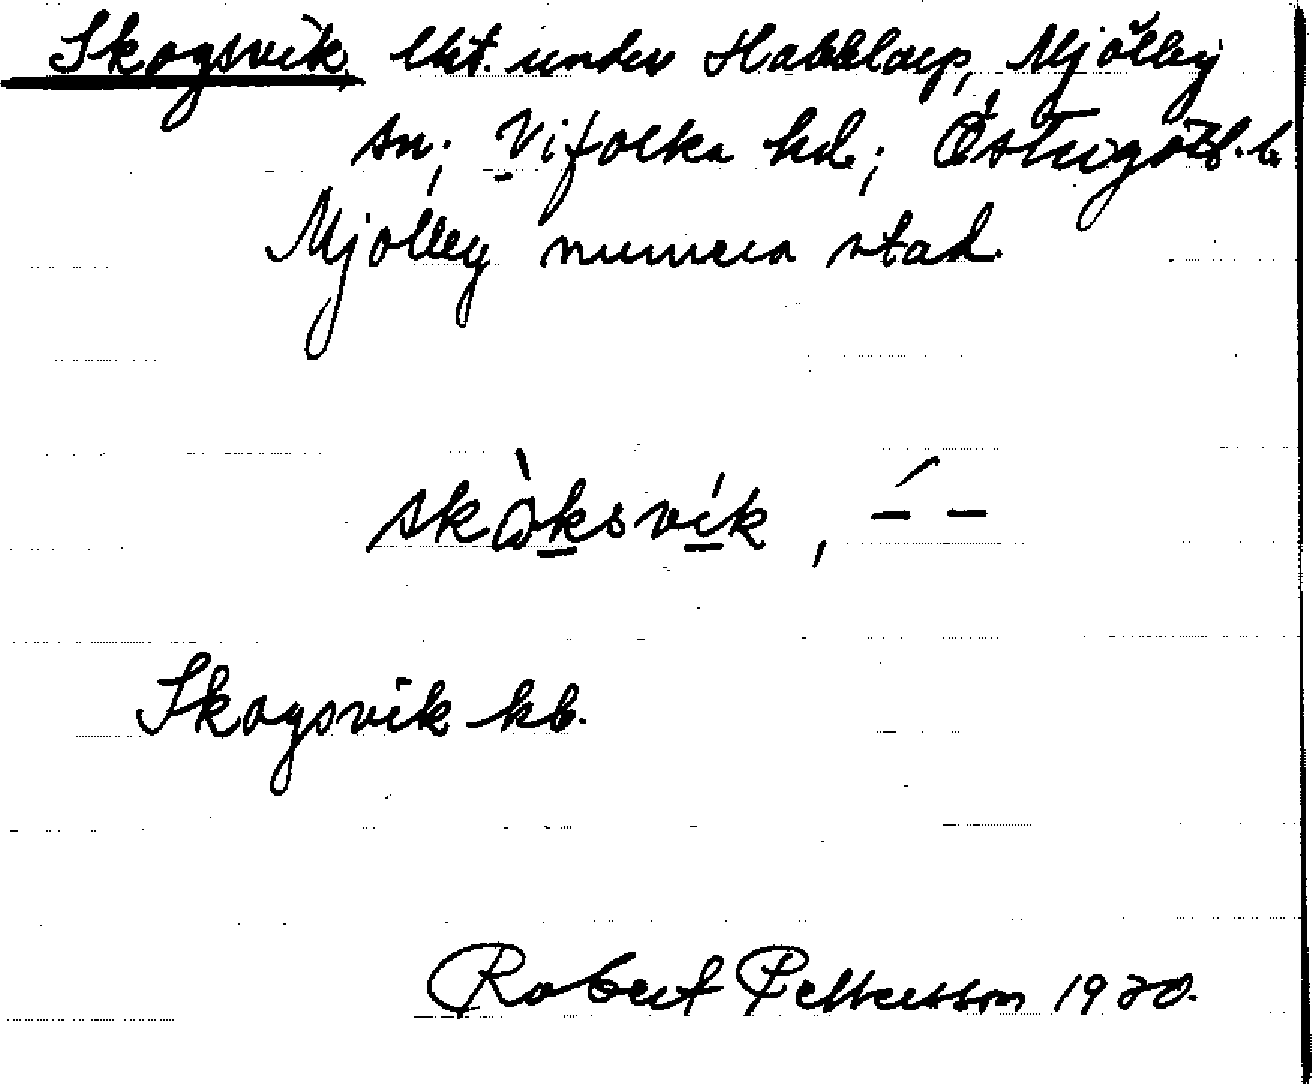 Skogsvik, lht. under Habblarp, Mjölby
sn; Vifolka hd; Östergötl. l.
Mjölby numera stad.
skòksvík, ´– –
Skogsvik kb.
Robert Pettersson 1920.